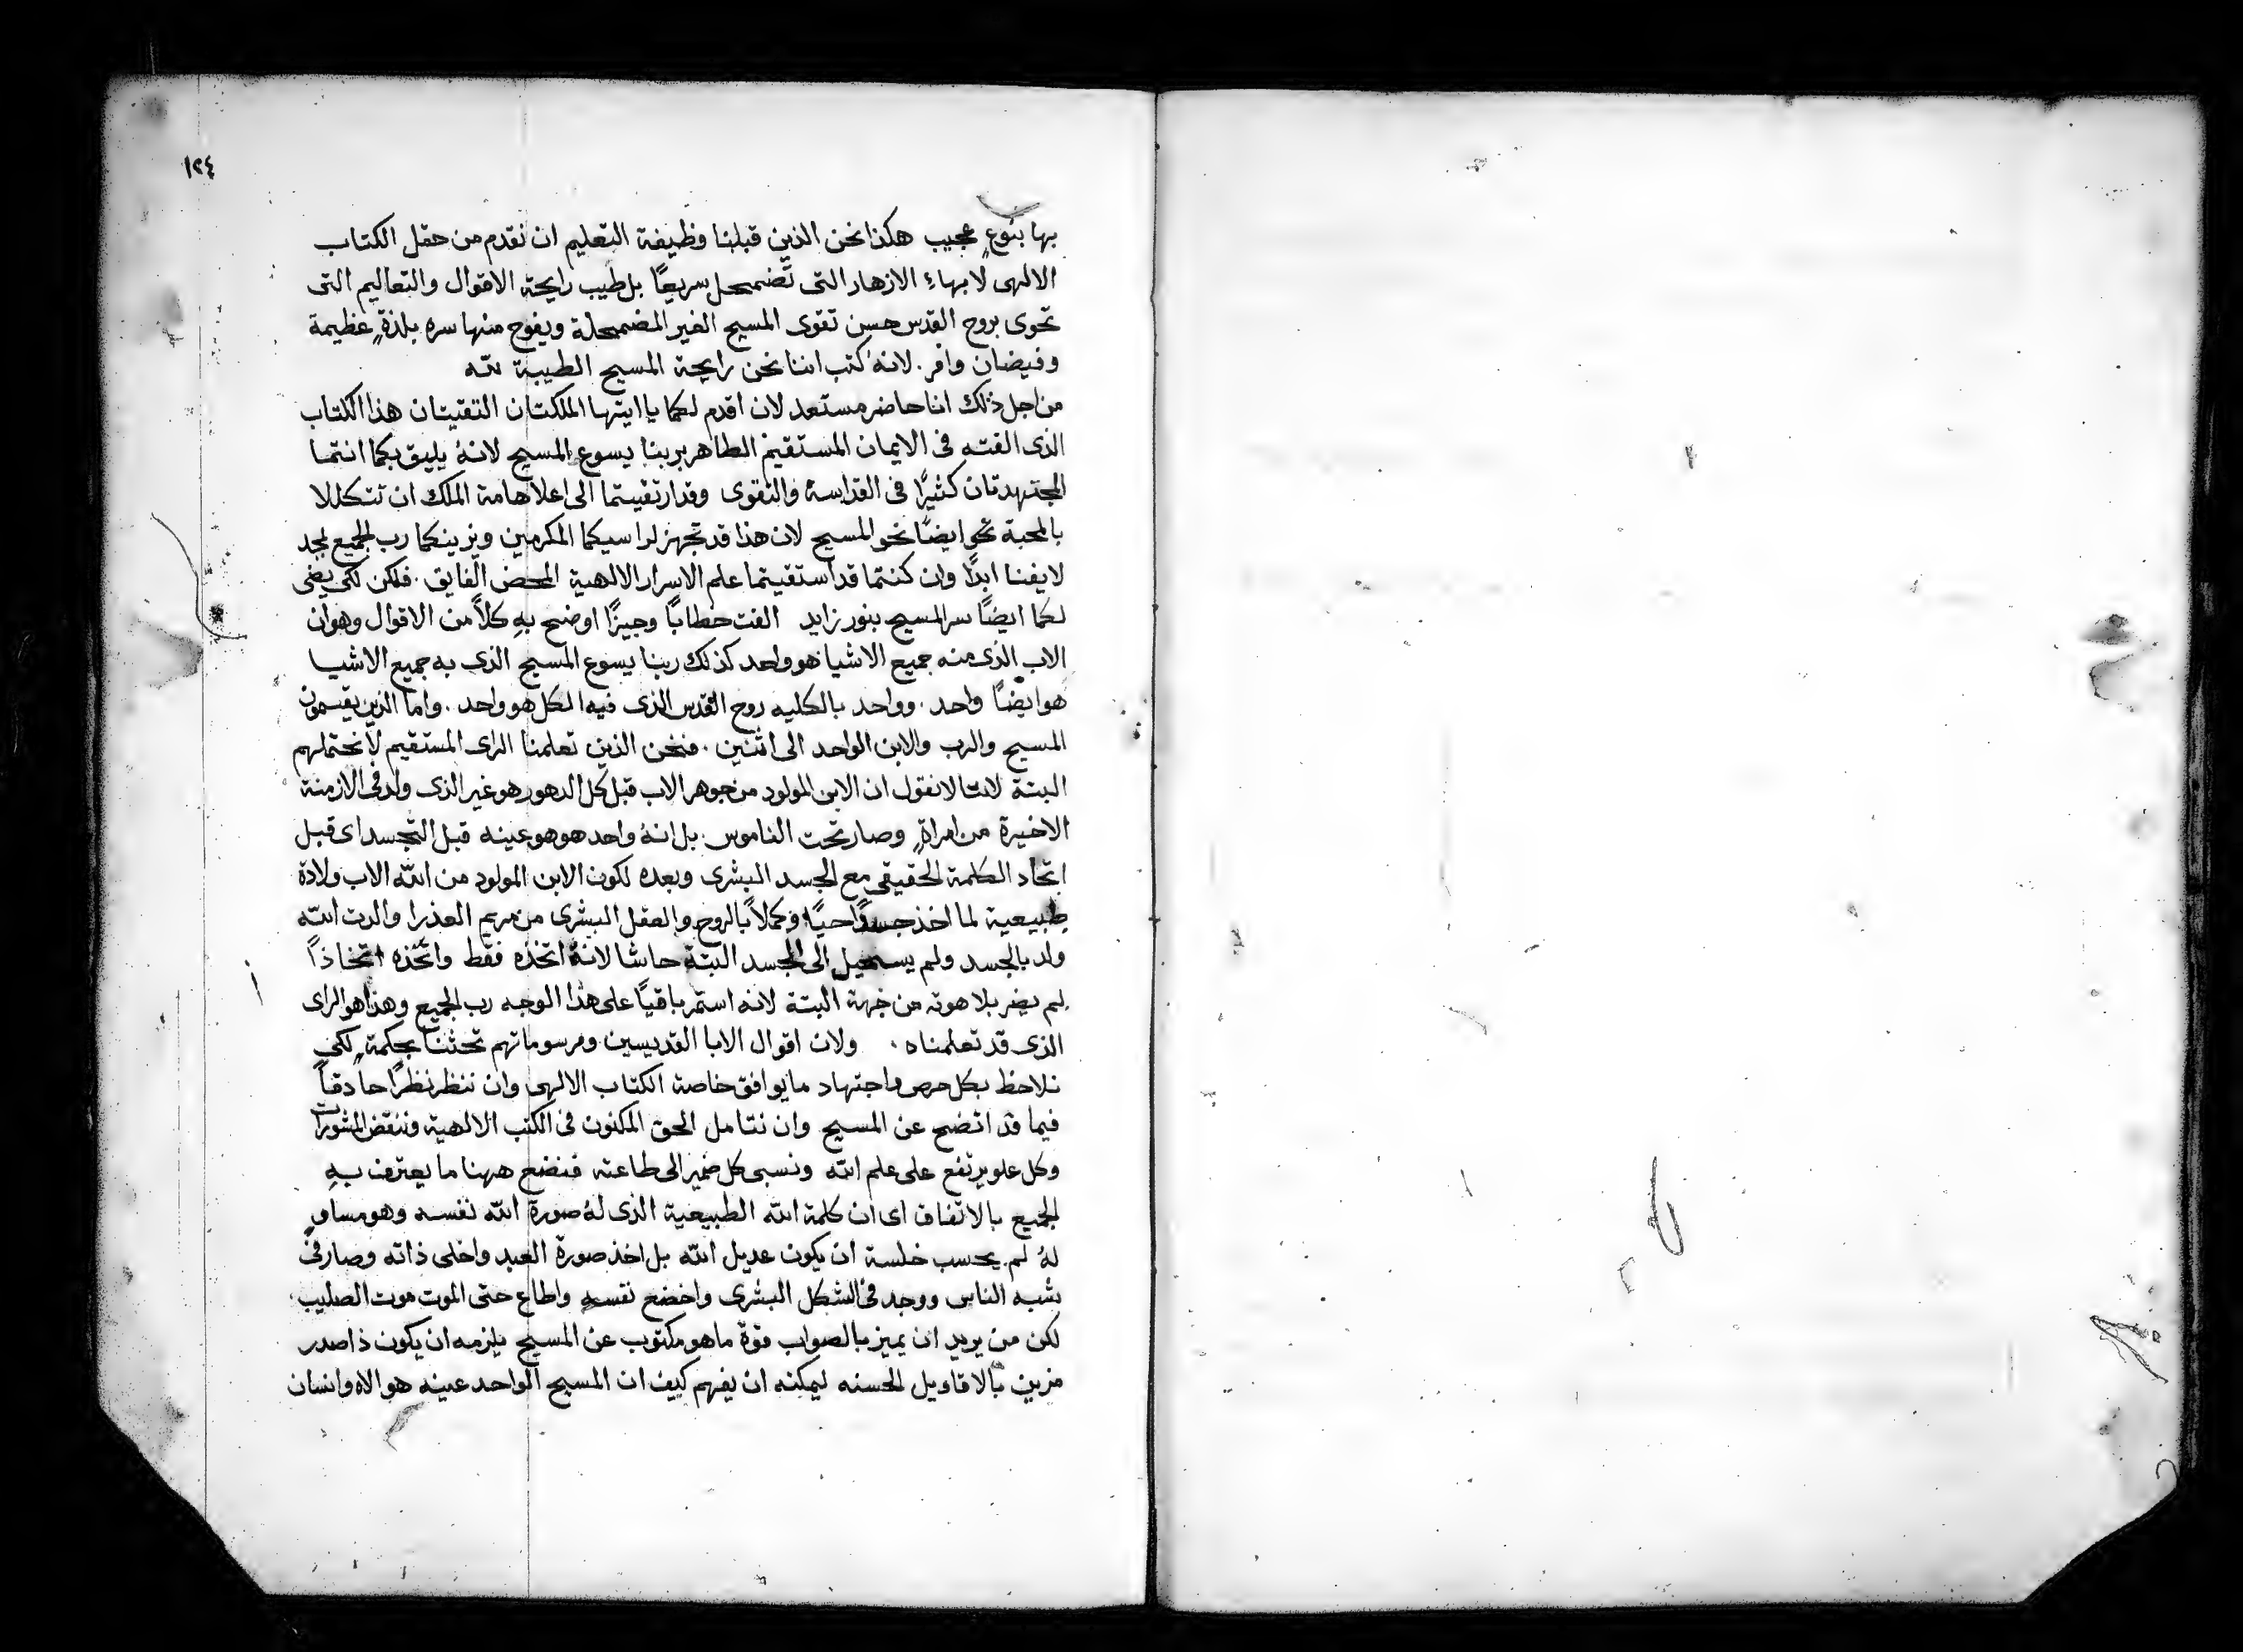 ١٢٤
بها بنوعٍ عجيب هكذا نحن الذين قبلنا وظيفة التعليم ان نقدم من حقل الكتاب
الالهى لا بهاءِ الازهار التى تضمحل سريعًا بل طيب رايحة الاقوال والتعاليم التى
تحوى بروح القدس حسن تقوى المسيح الغير المضمحلة ويفوح منها سره بلذةٍ عظيمة
وفيضان وافر. لانهُ كتب اننا نحن رايحة المسيح الطيبة لله
من اجل ذلك انا حاضر مستعد لان اقدم لكما يا ايتها الملكتان التقيتان هذا الكتاب
الذى الفته فى الايمان المستقيم الطاهر بربنا يسوع المسيح لانهُ يليق بكما انتما
المجتهدتان كثيرًا فى القداسة والتقوى وقد ارتقيتما الى اعلا هامة الملك ان تتكللا
بالمحبة ايضًا نحو المسيح لان هذا قد تجهز لراسيكما المكرمين ويزينكما رب الجميع بمجد
لا يفنا ابدًا وان كنتما قد استقيتما علم الاسرار الالهية المحض الفايق. فلكن لكى يضى
لكما ايضًا سر المسيح بنور زايد الفت خطابًا وجيزًا اوضح بهِ كلاً من الاقوال وهو ان
الاب الذى منه جميع الاشيا هو واحد كذلك ربنا يسوع المسيح الذى به جميع الاشيا
هو ايضًا واحد. وواحد بالكليه روح القدس الذى فيه الكل هو واحد. واما الذين يقسمون
المسيح والرب والابن الواحد الى اثنين. فنحن الذين تعلمنا الراى المستقيم لا نحتملهم
البتة لاننا لا نقول ان الابن المولود من جوهر الاب قبل كل الدهور هو غير الذى ولد فى الازمنة
الاخيرة من امراةٍ وصار تحت الناموس. بل انهُ واحد هو هو عينه قبل التجسد اى قبل
اتحاد الكلمة الحقيقى مع الجسد البشرى وبعده لكون الابن المولود من الله الاب ولادة
طبيعية لما اخذ جسدًا حيًا وكملاً بالروح والعقل البشرى من مريم العذرا والدت الله
ولد بالجسد ولم يستحيل الى الجسد البتة حاشا لانهُ اتخذه فقط واتخذه اتخاذاً
لم يضر بلاهوته من جهة البتة لانه استمر باقيًا على هذا الوجه رب الجميع وهذا هو الراى
الذى قد تعلمناه. ولان اقوال الابا القديسين ومرسوماتهم تحثنا بحكمةٍ لكى
نلاحظ بكل حرص واجتهاد ما يوافق خاصة الكتاب الالهى وان ننظر نظرًا حادقاً
فيما قد اتضح عن المسيح وان نتامل الحق المكنون فى الكتب الالهية وننقض المشورات
وكل علو يرتفع على علم الله ونسبى كل ضمير الى طاعته فنضع ههنا ما يعترف بهِ
الجميع بالاتفاق اى ان كلمة الله الطبيعية الذى لهُ صورة الله نفسه وهو مساوٍ
لهُ لم يحسب خلسة ان يكون عديل الله بل اخذ صورة العبد واخلى ذاته وصار فى
شبه الناس ووجد فى الشكل البشرى واخضع نفسهِ واطاع حتى الموت موت الصليب.
لكن من يريد ان يميز بالصواب قوة ما هو مكتوب عن المسيح يلزمه ان يكون ذا صدر
مزين بالاقاويل الحسنه ليمكنه ان يفهم كيف ان المسيح الواحد عينهِ هو الاه وانسان